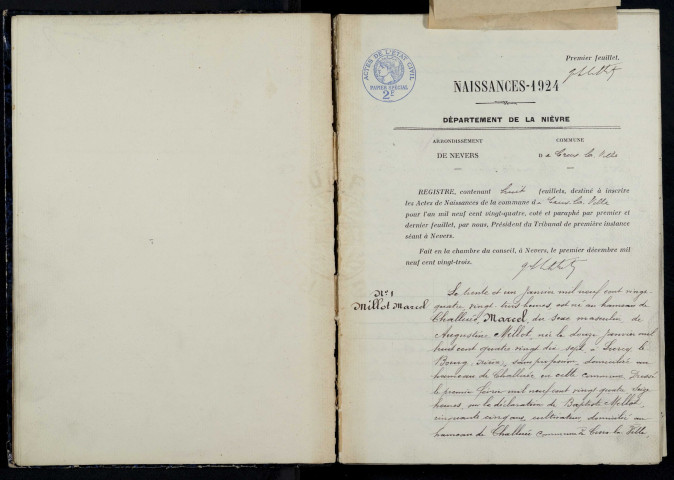 ACTES DE L'ÉTAT CIVIL
PAPIER SPÉCIAL
2F
Premier feuillet,
NAISSANCES-1924
DÉPARTEMENT DE LA NIÈVRE
ARRONDISSEMENT
DE NEVERS
COMMUNE
D e Crux la Ville
REGISTRE, contenant huit feuillets, destiné à inscrire
les Actes de Naissances de la commune d e Crux la Ville
pour l'an mil neuf cent vingt-quatre, coté et paraphé par premier et
dernier feuillet, par nous, Président du Tribunal de première instance
séant à Nevers.
Fait en la chambre du conseil, à Nevers, le premier décembre mil
neuf cent vingt-trois.
N° 1
Millot Marcel
Le trente et un janvier mil neuf cent vingt
quatre, vingt trois heures est né au hameau de
Marcel, du sexe masculin, de
Augustine Millot, née le douze janvier mil
huit cent quatre vingt dix sept à
Bourg, sans profession, domiciliée au
hameau de en cette commune. Dressé
le premier février mil neuf cent vingt quatre seize
heures, sur la déclaration de Baptiste Millot,
cinquante cinq ans, cultivateur, domicilié au
hameau de commune de Crux la Ville,